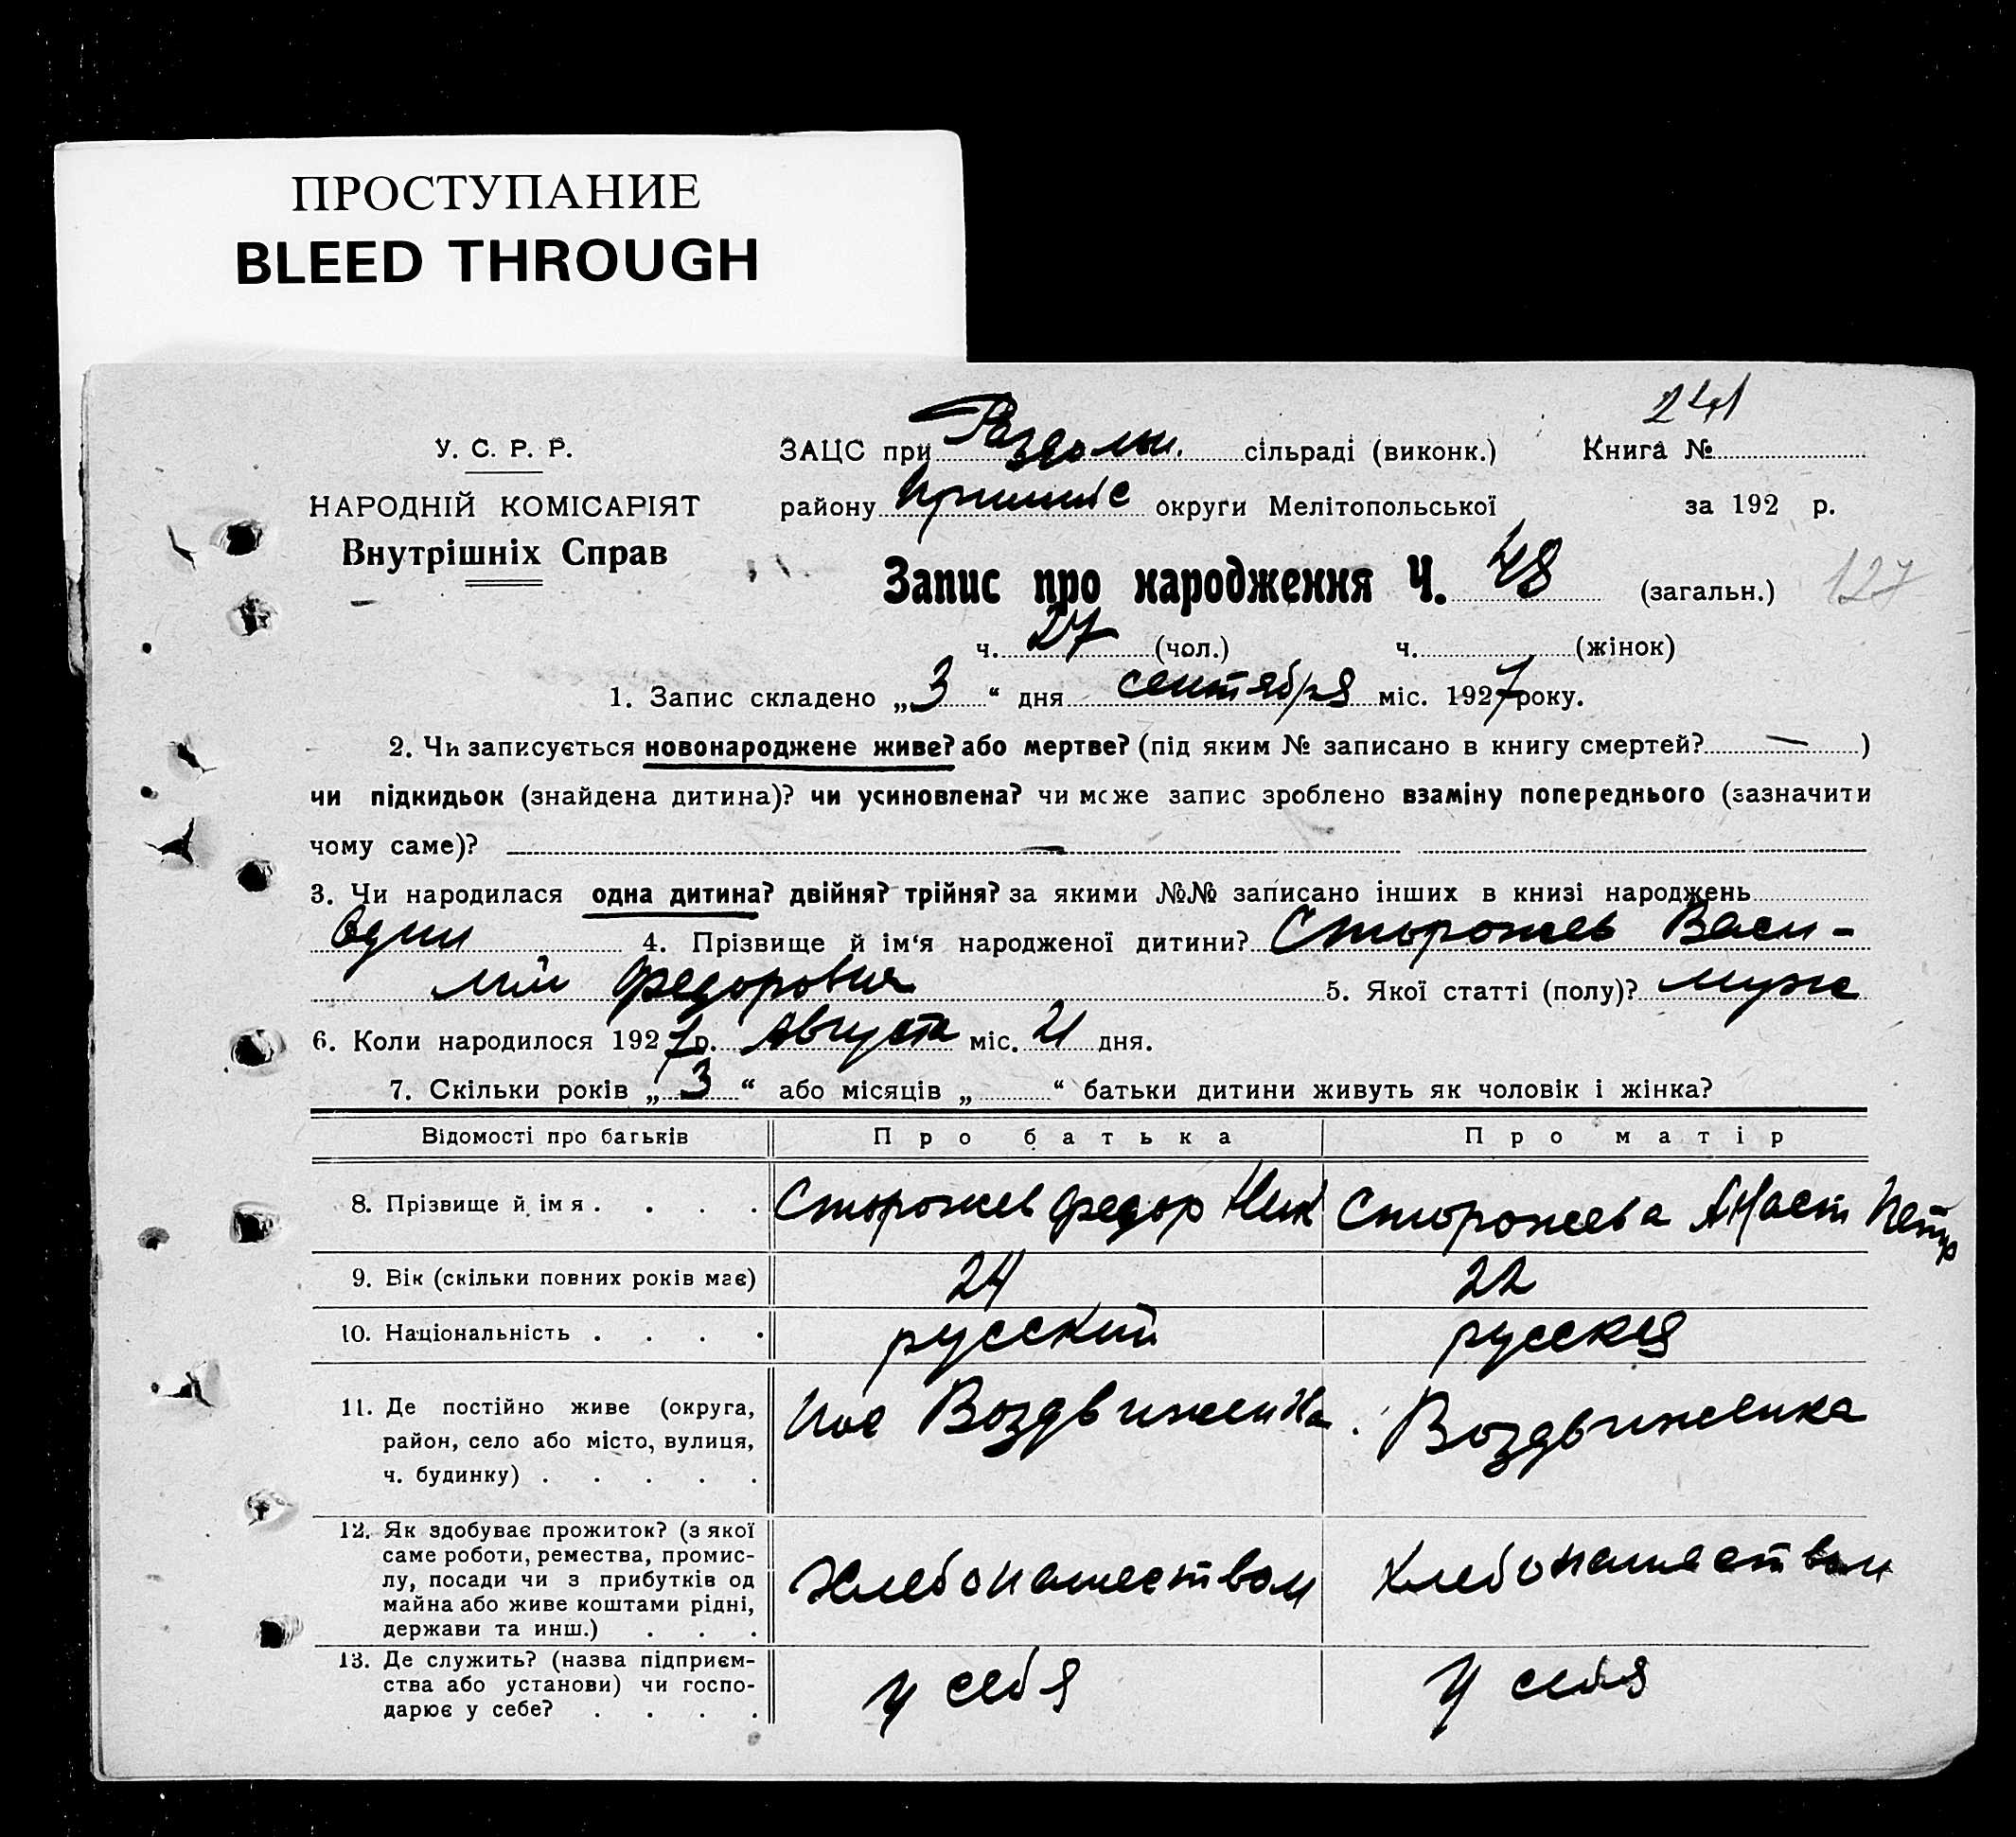 ПРОСТУПАНИЕ
BLEED THROUGH
241
У. С. Р. Р.
ЗАЦС при Раздольн. сільраді (виконк.) Книга №
НАРОДНІЙ КОМІСАРІЯТ
району округи Мелітопольської за 192 р.
Внутрішніх Справ
Запис про народження Ч. 48 (загальн.) 127
ч. 27 (чол.) ч. (жінок)
1. Запис складено „3“ дня сентября міс. 1927 року.
2. Чи записується новонароджене живе? або мертве? (під яким № записано в книгу смертей? — )
чи підкидьок (знайдена дитина)? чи усиновлена? чи може запис зроблено взаміну попереднього (зазначити
чому саме)? —
3. Чи народилася одна дитина? двійня? трійня? за якими №№ записано інших в книзі народжень
Один 4. Прізвище й ім‘я народженої дитини? Сторожев Васи-
лий Федорович 5. Якої статті (полу)? муж
6. Коли народилося 1927 р. Августа міс. 21 дня.
7. Скільки років „3“ або місяців „ “ батьки дитини живуть як чоловік і жінка?
Відомості про батьків Про батька Про матір
8. Прізвище й ім я . . . . Сторожев Федор Ник Сторожева Анаст Петр
9. Вік (скільки повних років має) 24 22
10. Національність . . . . русский русская
11. Де постійно живе (округа, район, село або місто, вулиця, ч. будинку) . . . . . пос Воздвиженка. Воздвиженка
12. Як здобуває прожиток? (з якої
саме роботи, ремества, промис-
лу, посади чи з прибутків од
майна або живе коштами рідні,
держави та инш.) . . . Хлебопашеством Хлебопашеством
13. Де служить? (назва підприєм-
ства або установи) чи госпо-
дарює у себе? . . . . у себя у себя